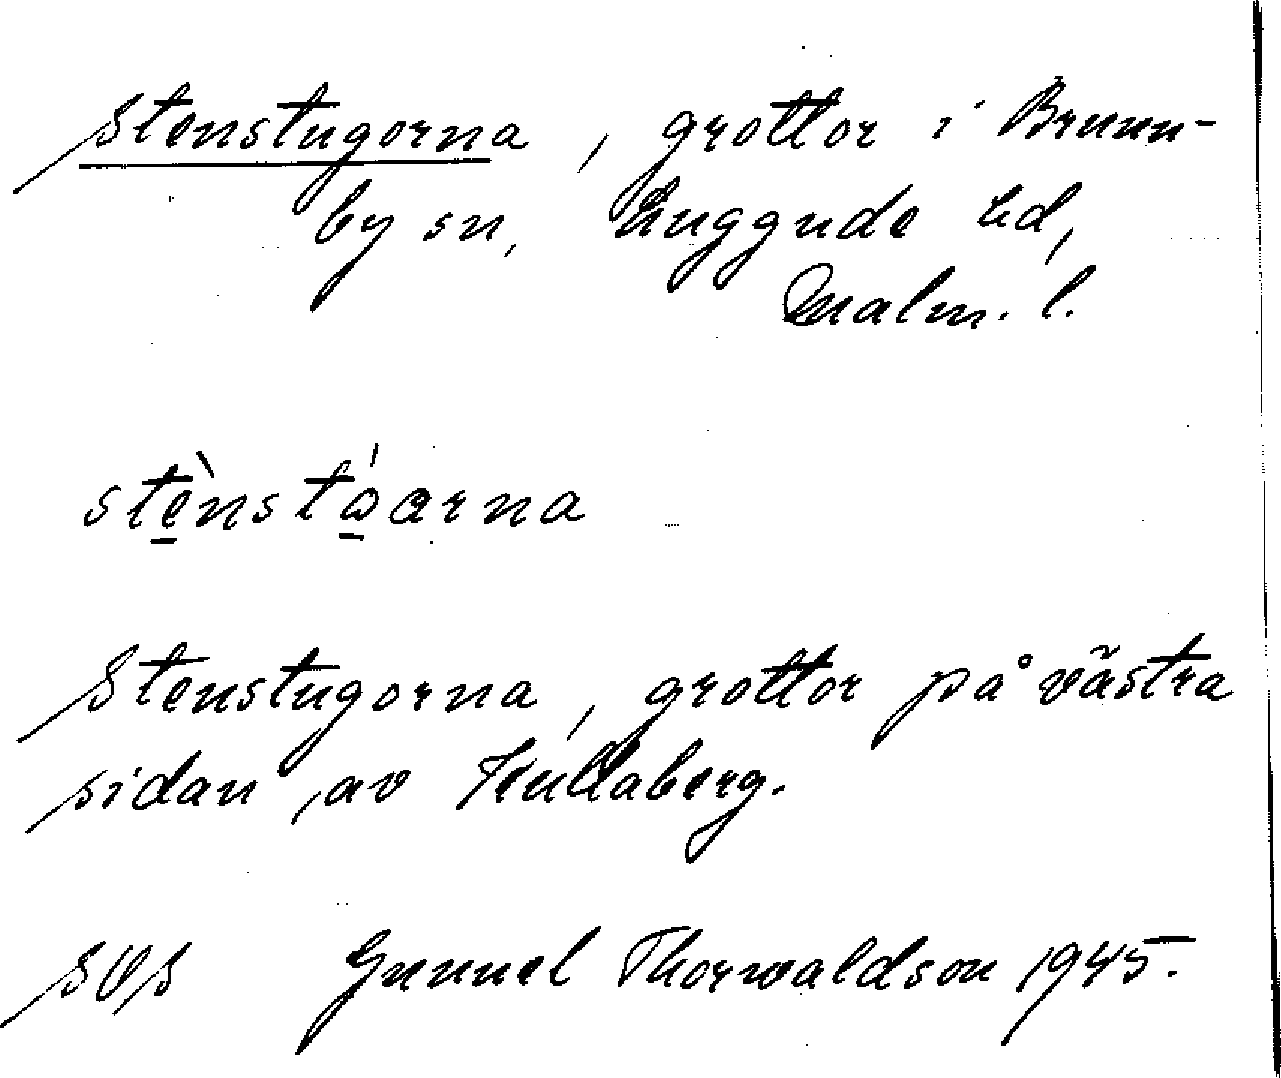 Stenstugorna, grottor i Brunn-
by sn, Luggude hd,
Malm. l.
stènstóarna
Stenstugorna, grottor på västra
sidan av Kullaberg.
SOS Gunnel Thorwaldson 1945.